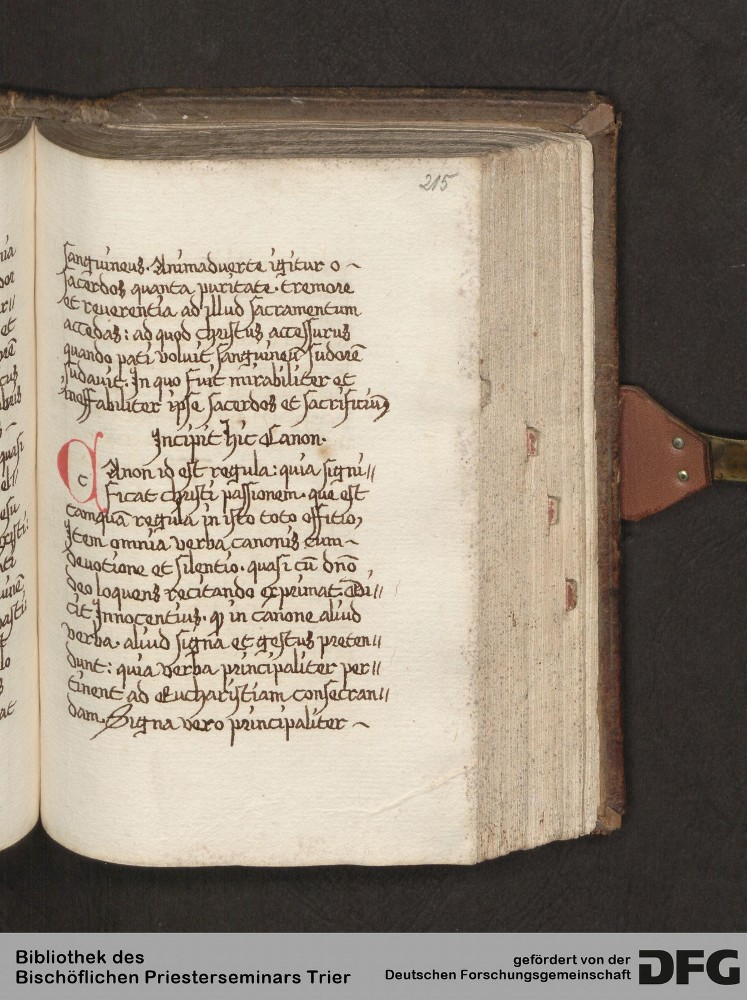 215
sanguineus. Animaduerte igitur o ~
sacerdos quanta puritate. tremore
et reuerentia ad illud sacramentum
accedas: ad quod christus accessurus
quando pati voluit sanguineū sudorē
sudauit. In quo fuit mirabiliter et
ineffabiliter ipse sacerdos et sacrificiū
Incipit hic Canon.
c Anon id est regula: quia signi//
ficat christi passionem. que est
tamquā regula in isto toto officio,
Item omnia verba canonis cum ~
deuotione et silentio. quasi cū dn̄o
deo loquens recitando exprimat. Di//
cit Innocentius. ꝙ in canone aliud
verba. aliud signa et gestus preten//
dunt: quia verba principaliter per//
tinent ad Eucharistiam consecran//
dam. Signa vero principaliter ~
Bibliothek des
Bischöflichen Priesterseminars Trier
gefördert von der
Deutschen Forschungsgemeinschaft
DFG